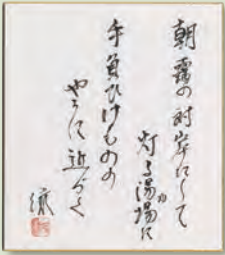 朝霧の対岸にして
灯る湯場に
手負ひけものの
やうに近づく